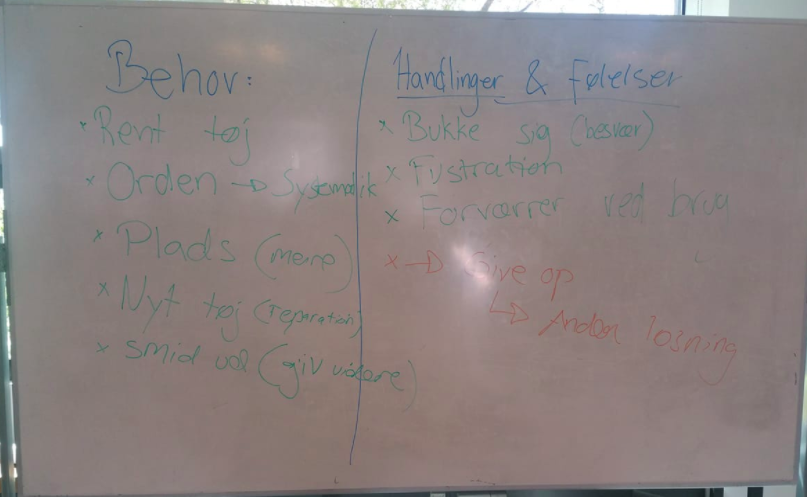 Behov:
* Rent tøj
* Orden → Systematik
* Plads (mere)
* Nyt tøj (reparation)
* smid ud (giv videre)
Handlinger & Følelser
* Bukke sig (besvær)
* Fustration
* Forværrer ved brug
* → Give op
↳ Anden løsning